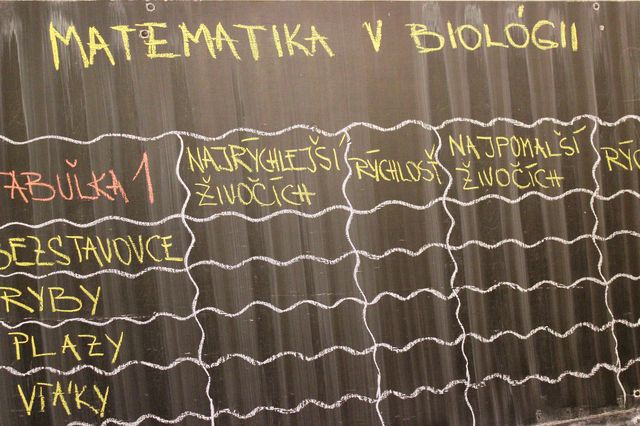 MATEMATIKA V BIOLÓGII
ABUĽKA 1
NAJRÝCHLEJŠÍ
ŽIVOČÍCH
RÝCHLOSŤ
NAJPOMALŠÍ
ŽIVOČÍCH
RÝC
BEZSTAVOVCE
RYBY
PLAZY
VTÁKY